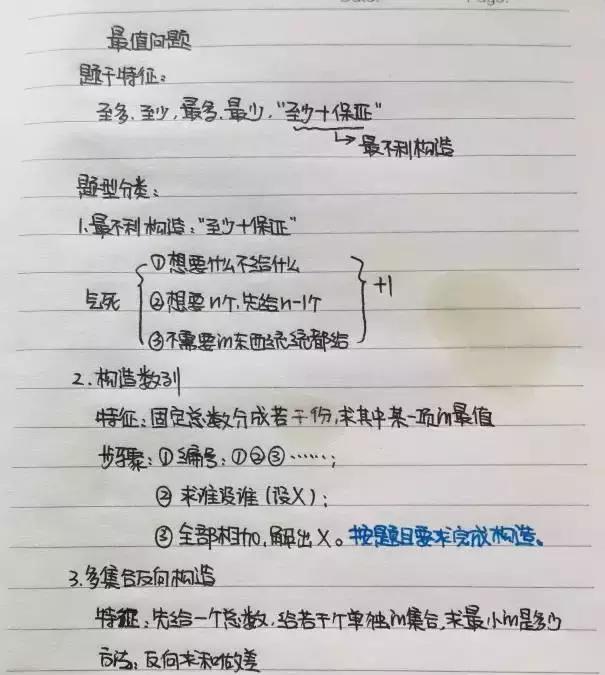 Page:
最值问题
题干特征:
至多、至少,最多、最少,"至少+保证"
→最不利构造
题型分类:
1.最不利构造:"至少+保证"
①想要什么不给什么
气死 ②想要n个,先给n-1个 +1
③不需要的东西统统都给
2.构造数列
特征:固定总数分成若干份,求其中某一项的最值
步骤:①编号:①②③……;
②求谁设谁(设X);
③全部相加,解出X。按题目要求完成构造。
3.多集合反向构造
特征:先给一个总数,给若干个单独的集合,求最小的是多少
方法:反向求和做差